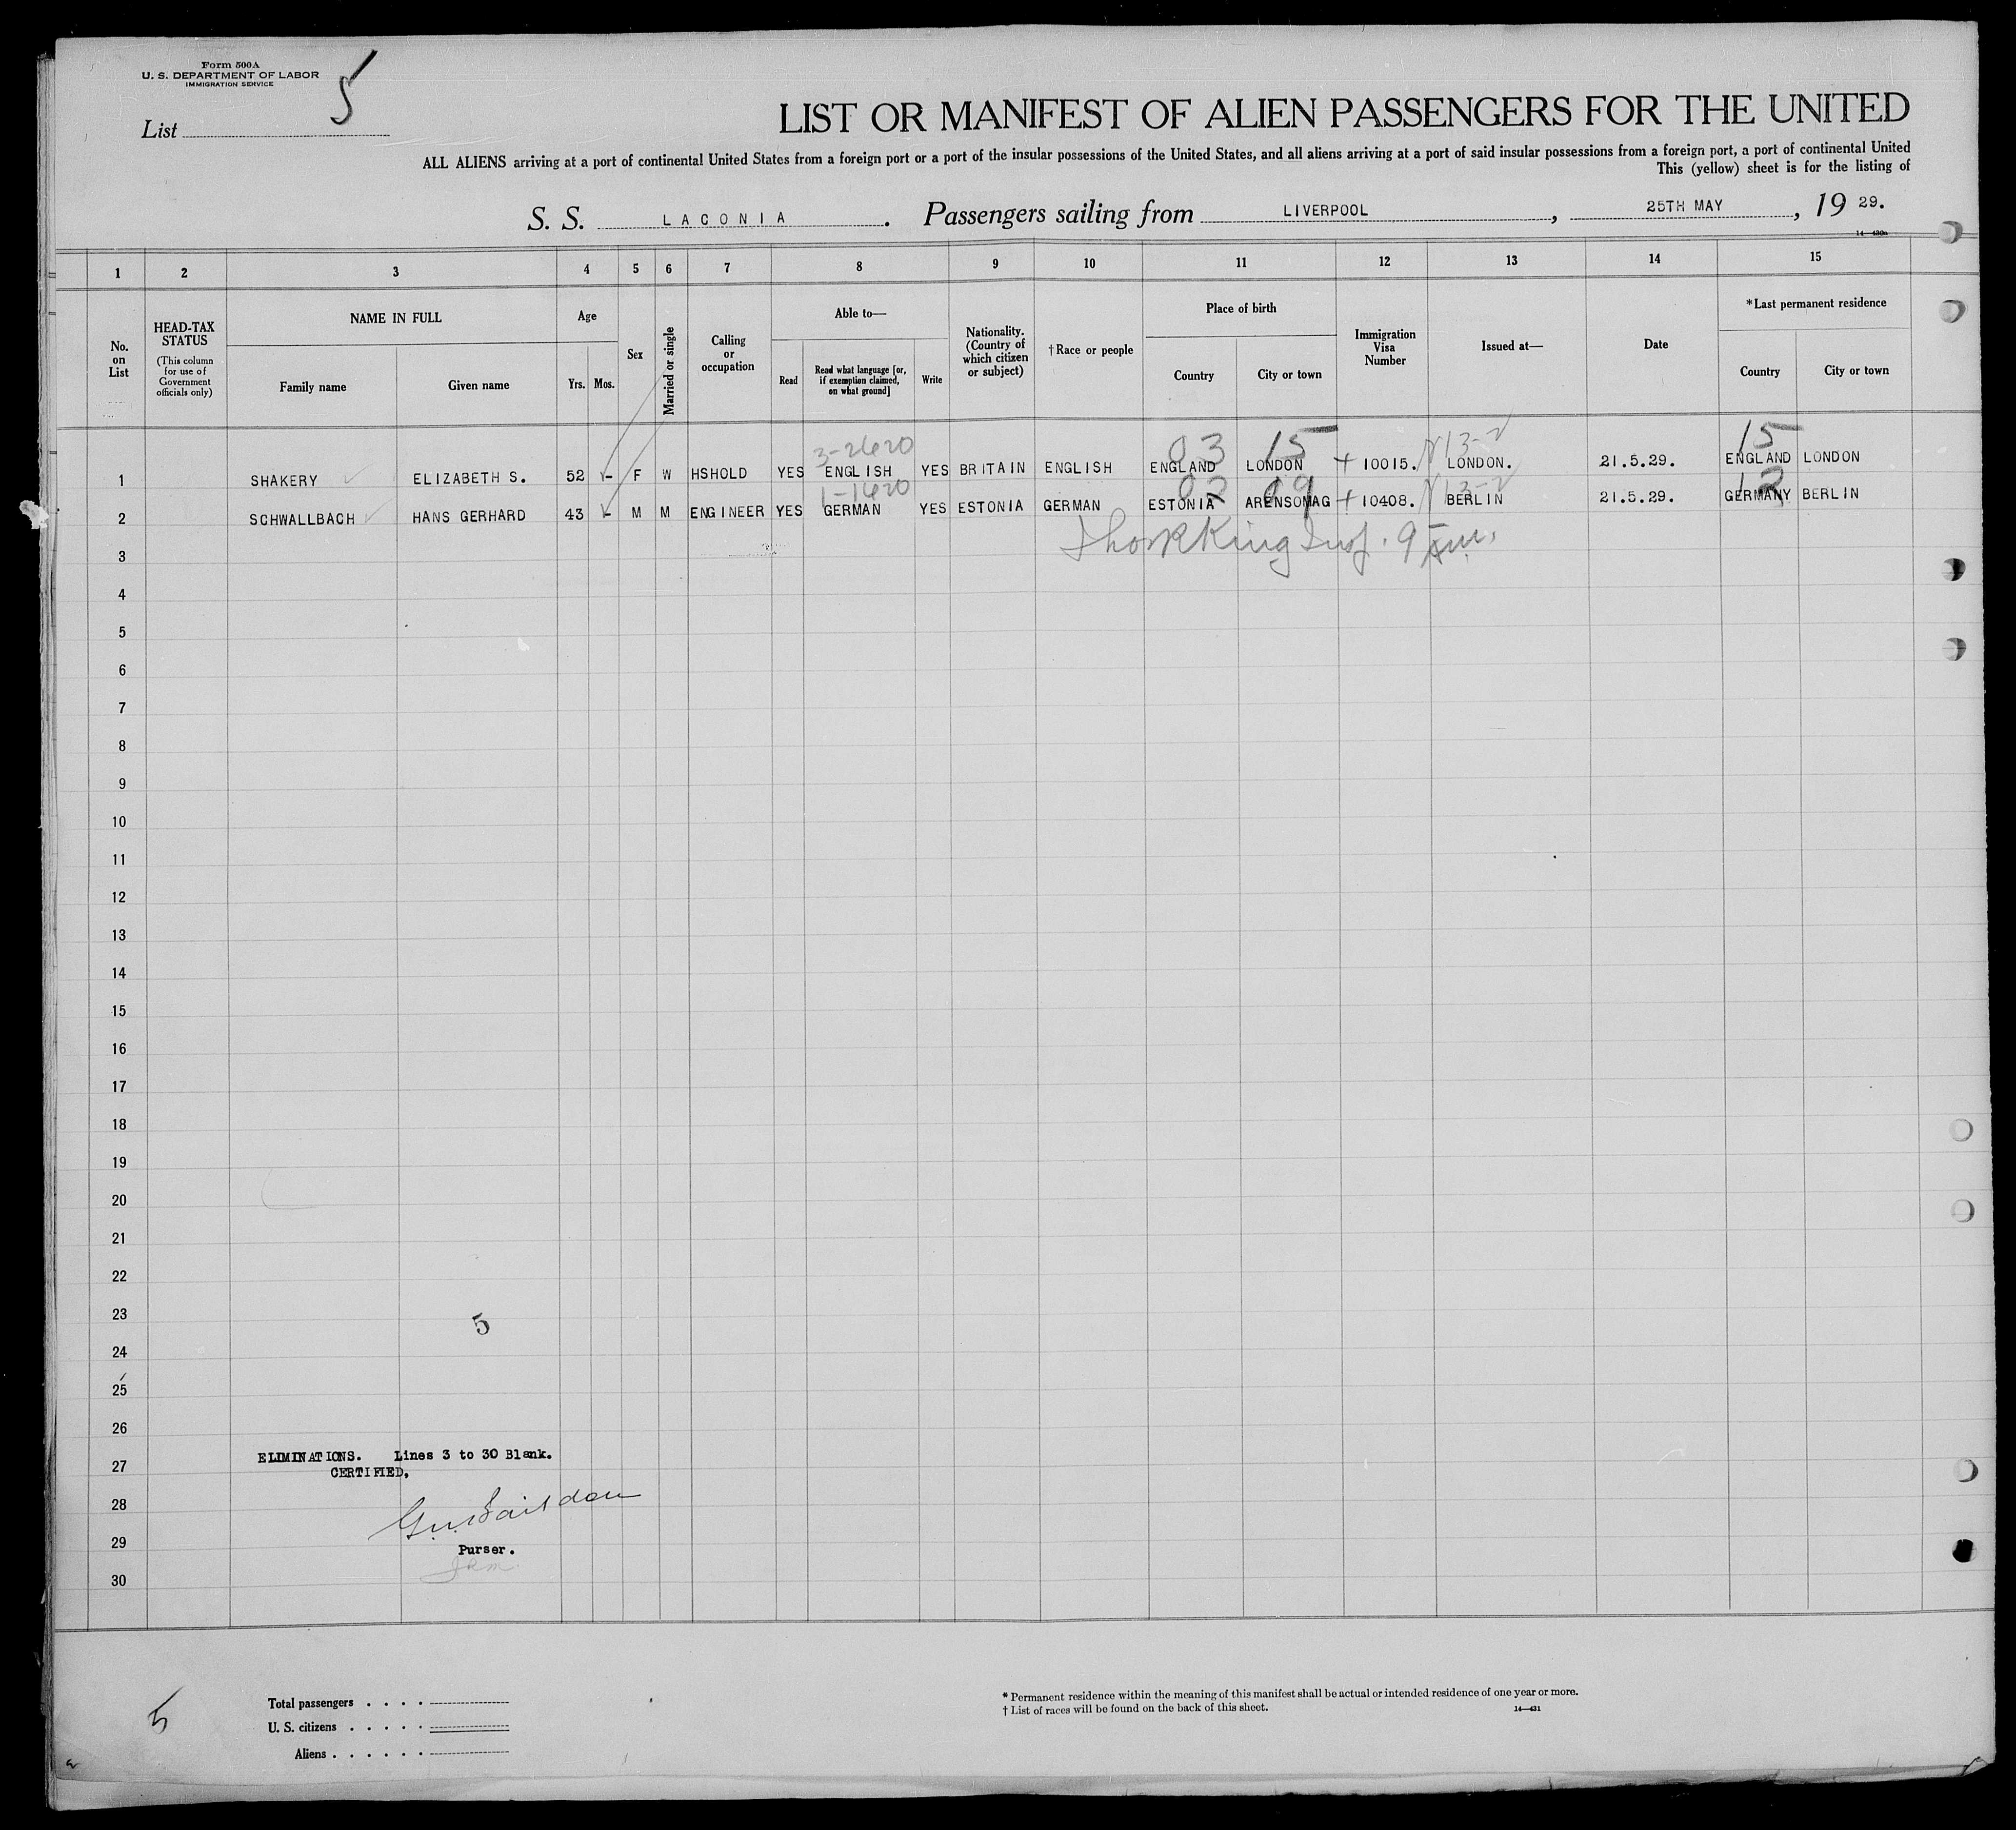 Form 500A
U. S. DEPARTMENT OF LABOR
IMMIGRATION SERVICE
List 5
LIST OR MANIFEST OF ALIEN PASSENGERS FOR THE UNITED
ALL ALIENS arriving at a port of continental United States from a foreign port or a port of the insular possessions of the United States, and all aliens arriving at a port of said insular possessions from a foreign port, a port of continental United
This (yellow) sheet is for the listing of
S. S. LACONIA. Passengers sailing from LIVERPOOL, 25TH MAY, 19 29.
14—430a
1 2 3 4 5 6 7 8 9 10 11 12 13 14 15
No. on List
HEAD-TAX STATUS
(This column for use of Government officials only)
NAME IN FULL
Family name
Given name
Age
Yrs.
Mos.
Sex
Married or single
Calling or occupation
Able to—
Read
Read what language [or, if exemption claimed, on what ground]
Write
Nationality. (Country of which citizen or subject)
†Race or people
Place of birth
Country
City or town
Immigration Visa Number
Issued at—
Date
*Last permanent residence
Country
City or town
3-2620 03 15 13-2 15
1 SHAKERY ELIZABETH S. 52 - F W HSHOLD YES ENGLISH YES BRITAIN ENGLISH ENGLAND LONDON 10015. LONDON. 21.5.29. ENGLAND LONDON
1-1620 02 09 13-2 12
2 SCHWALLBACH HANS GERHARD 43 - M M ENGINEER YES GERMAN YES ESTONIA GERMAN ESTONIA ARENSOMAG 10408. BERLIN 21.5.29. GERMANY BERLIN
King Insp. 9
3
4
5
6
7
8
9
10
11
12
13
14
15
16
17
18
19
20
21
22
23
5
24
25
26
27
ELIMINATIONS. Lines 3 to 30 Blank.
CERTIFIED,
28
29
Purser.
30
5
Total passengers . . . .
U. S. citizens . . . . .
Aliens . . . . . .
* Permanent residence within the meaning of this manifest shall be actual or intended residence of one year or more.
† List of races will be found on the back of this sheet.
14—431